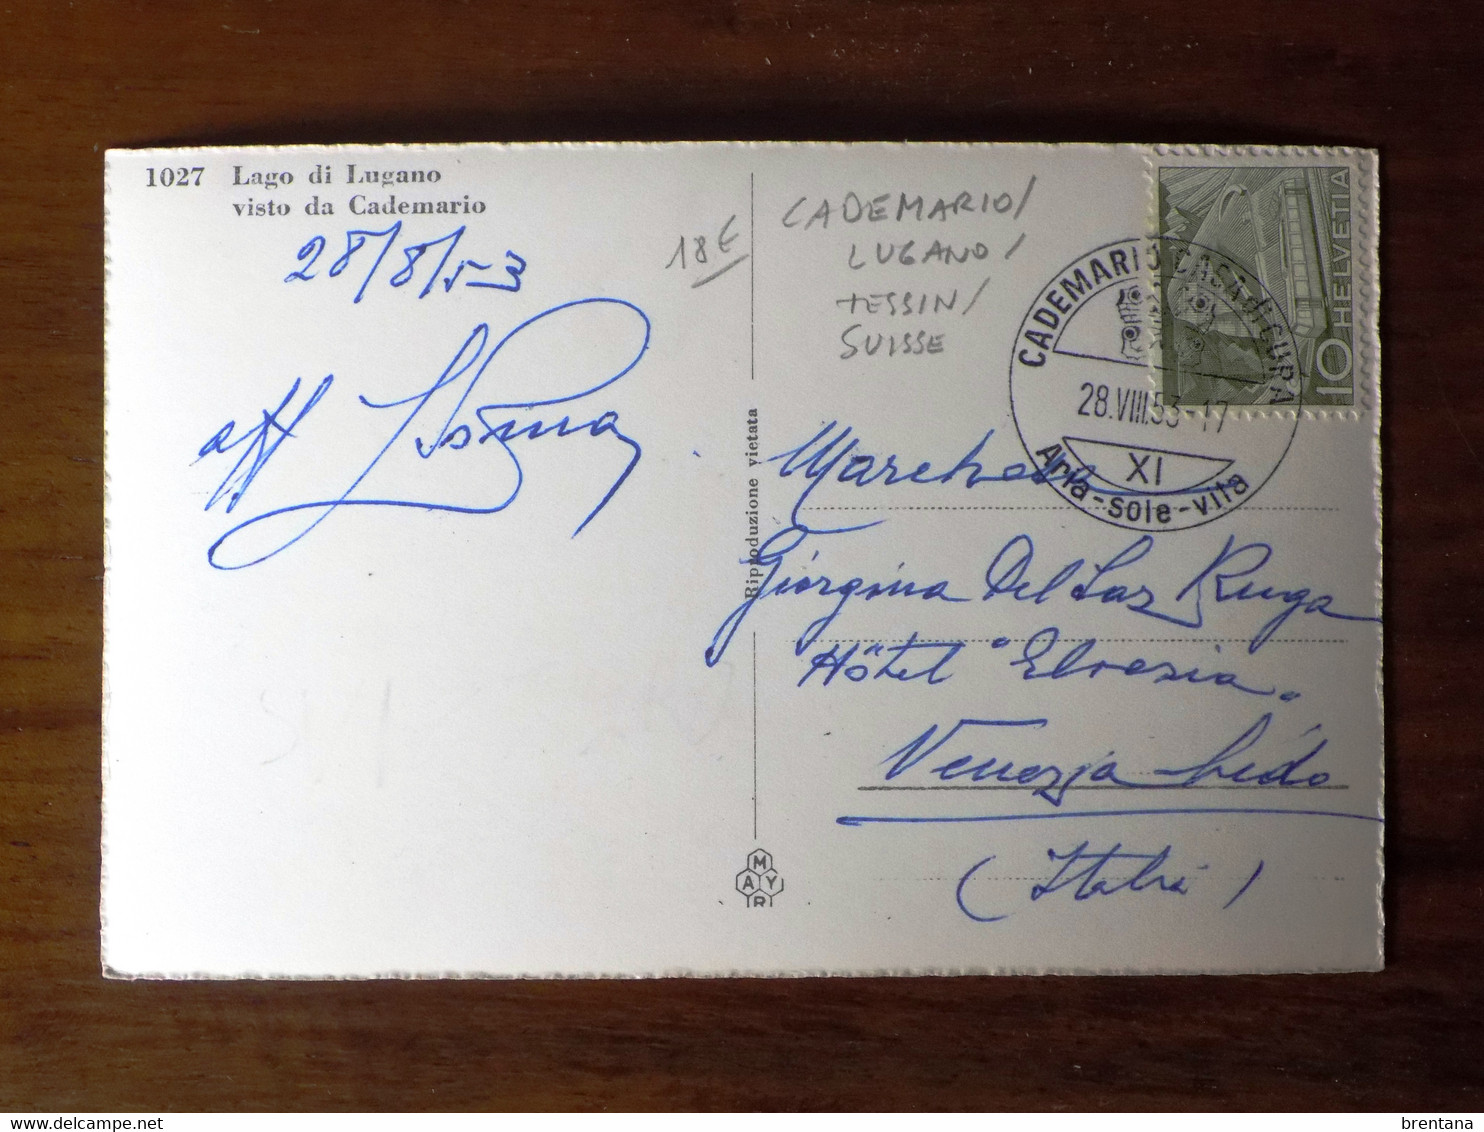 1027 Lago di Lugano
visto da Cademario
28/8/53
18€
CADEMARIO/
LUGANO/
TESSIN/
SUISSE
HELVETIA
10
CADEMARIO CASA di CURA
28.VIII.53-17
XI
Aria-sole-vita
aff
Riproduzione vietata
Marchesa
Giorgina Del
Hôtel "Elvezia"
Venezia Lido
(Italia)
MAYR
brentana